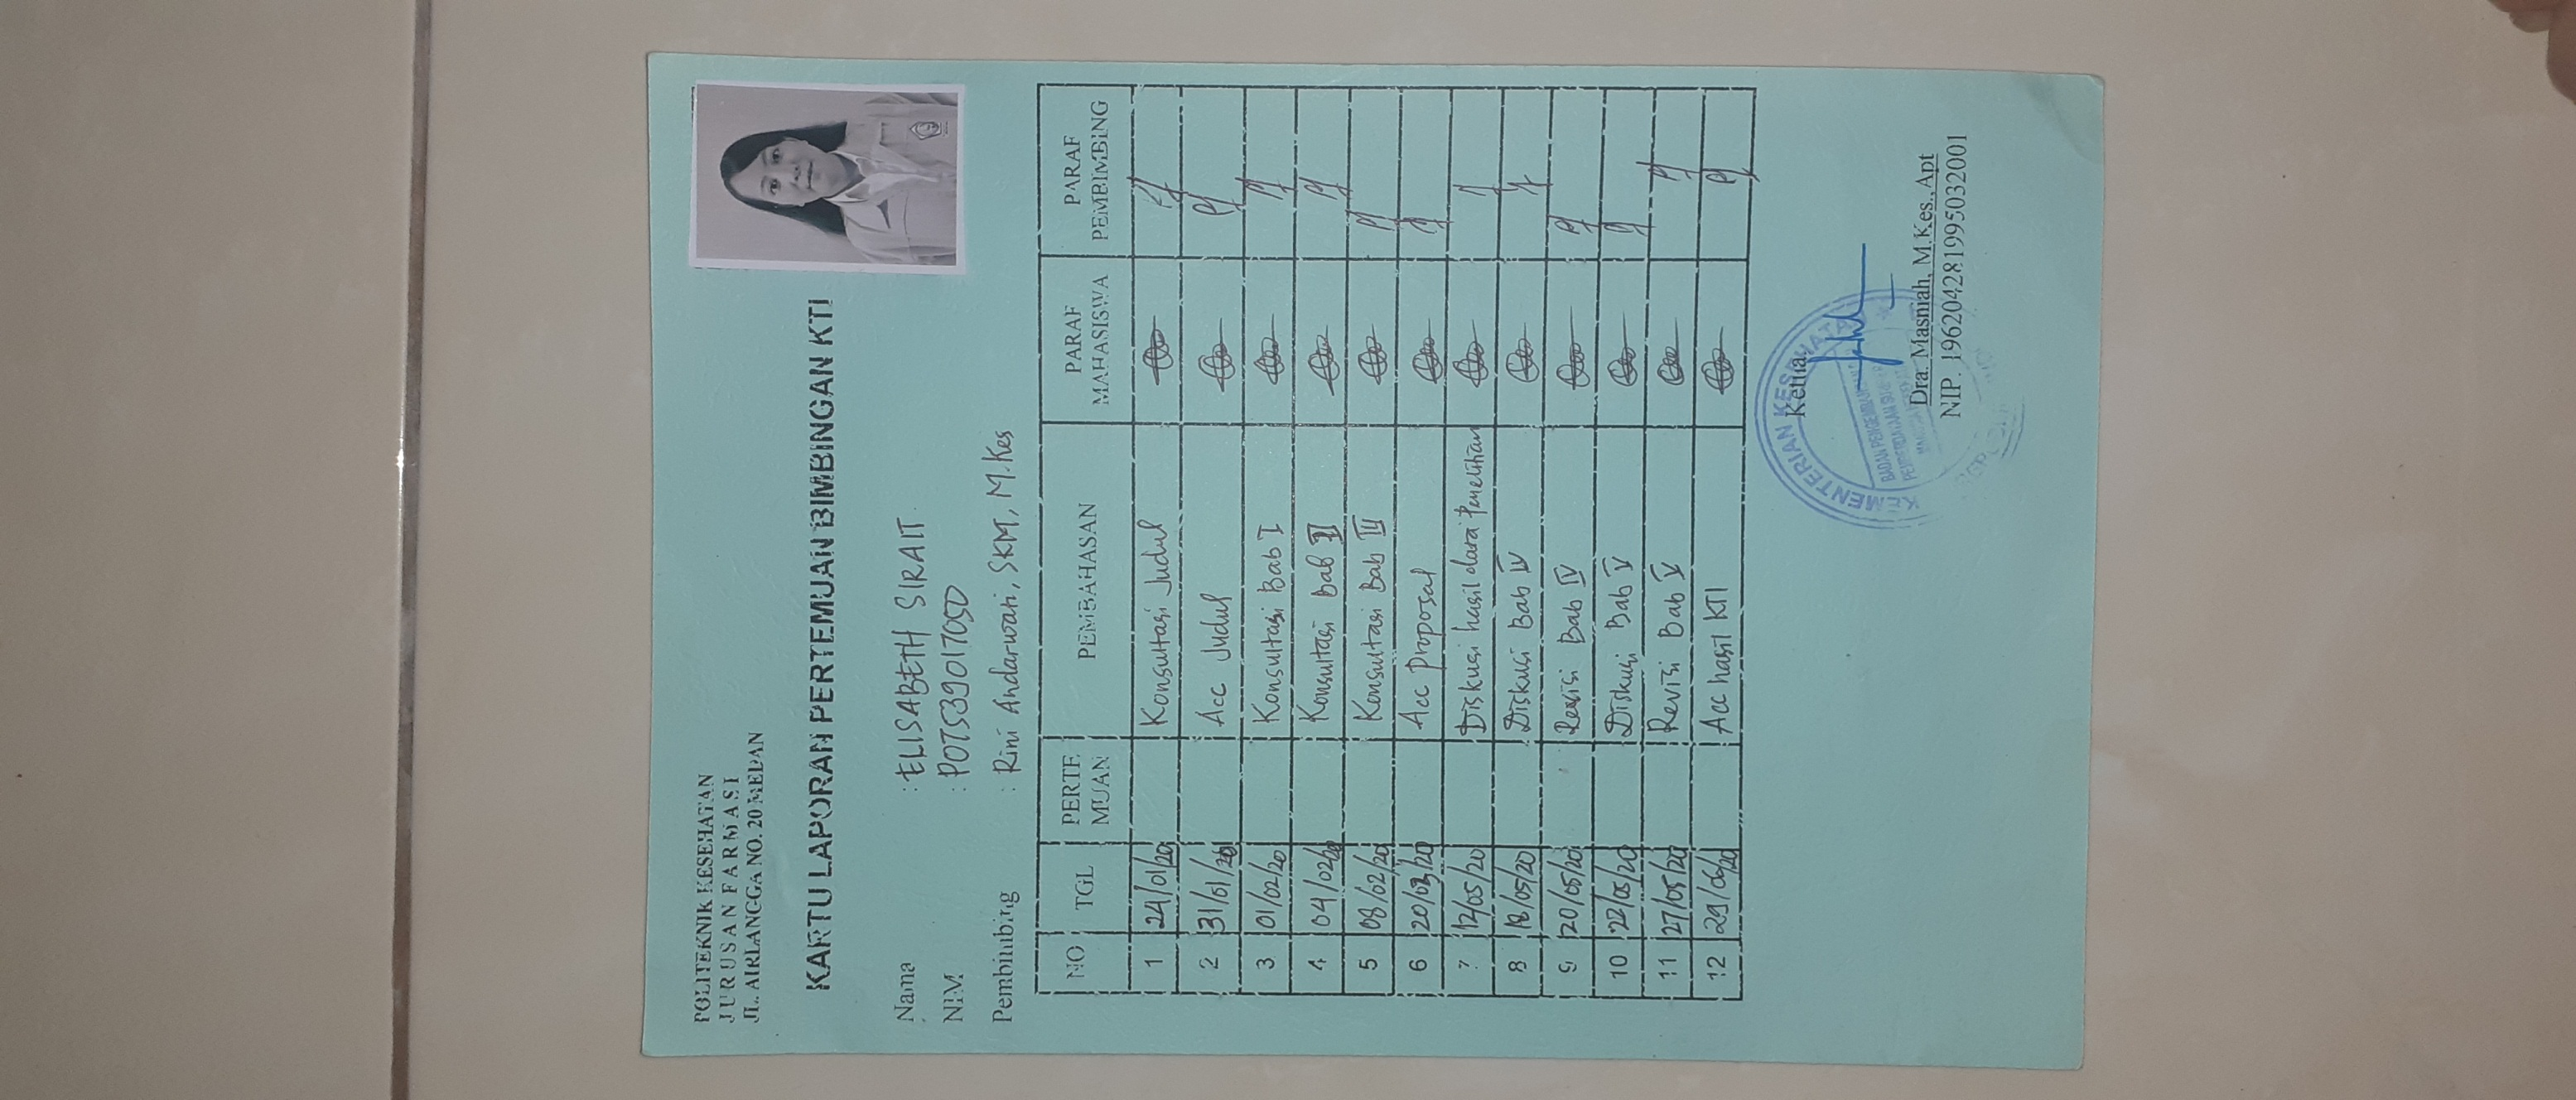 POLITEKNIK KESEHATAN
JURUSAN FARMASI
JL. AIRLANGGA NO. 20 MEDAN
KARTU LAPORAN PERTEMUAN BIMBINGAN KTI
Nama : ELISABETH SIRAIT
NIM : P07539017050
Pembimbing : Rini Andarwati, SKM, M.Kes
NO TGL PERTE MUAN PEMBAHASAN PARAF MAHASISWA PARAF PEMBIMBING
1 24/01/20 Konsultasi Judul
2 31/01/20 Acc Judul
3 01/02/20 Konsultasi Bab I
4 04/02/20 Konsultasi Bab II
5 08/02/20 Konsultasi Bab III
6 20/03/20 Acc Proposal
7 12/05/20 Diskusi hasil data Penelitian
8 18/05/20 Diskusi Bab IV
9 20/05/20 Revisi Bab IV
10 22/05/20 Diskusi Bab V
11 27/05/20 Revisi Bab V
12 29/05/20 Acc hasil KTI
Ketua
KEMENTERIAN KESEHATAN
Dra. Masniah, M.Kes, Apt
NIP. 196204281995032001